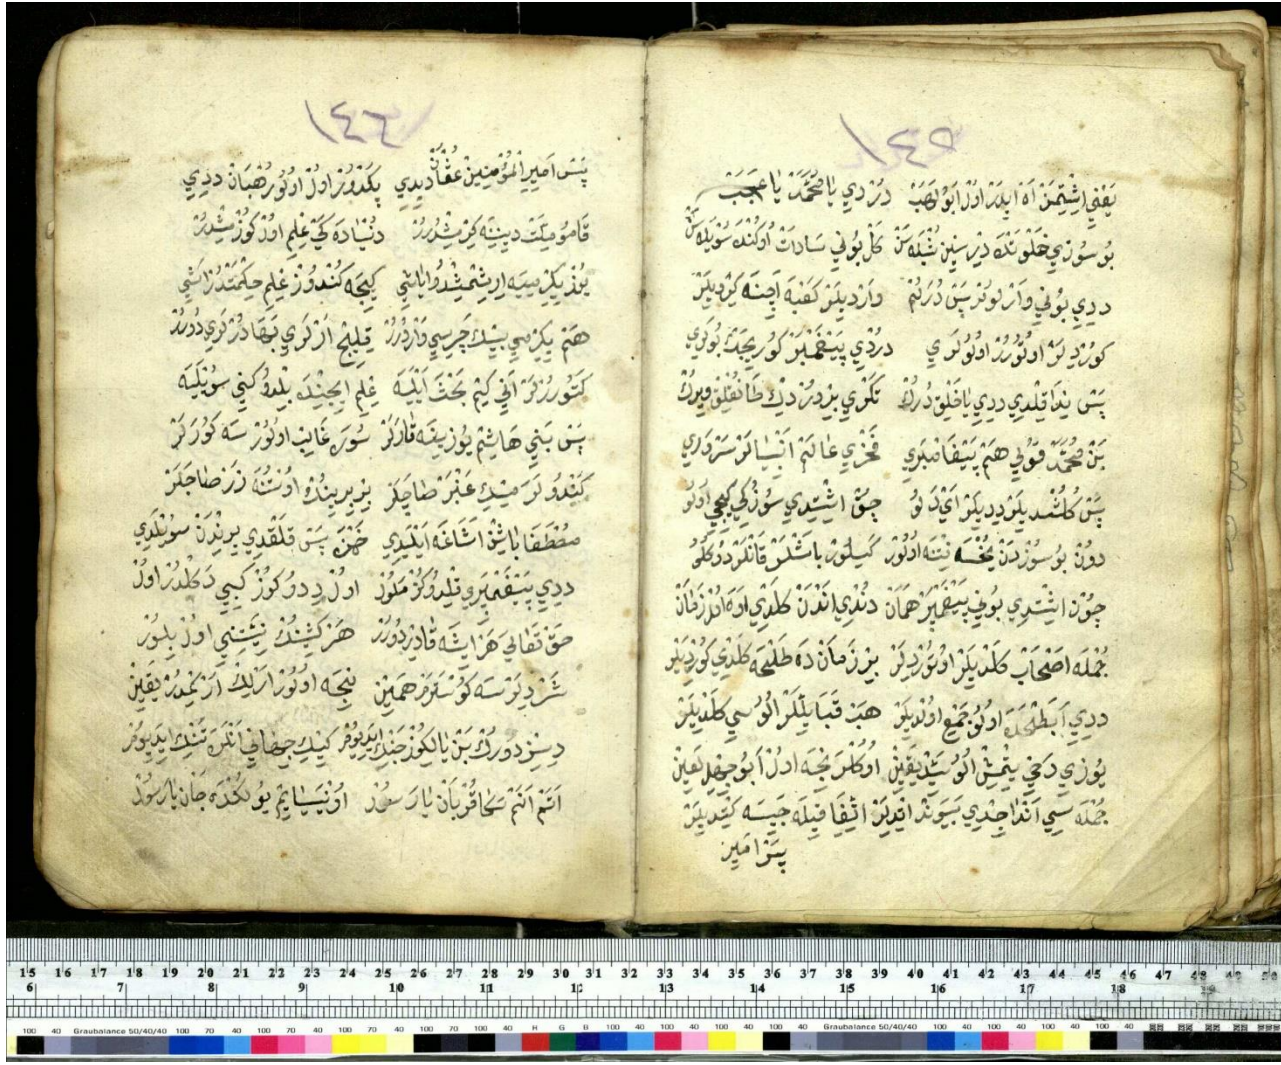 ١٤٥
يَعْنِي اِشِتْمَنْ اَهْ اَيْلَرْ اُولْ اَبُولَهَبْ دَرْدِي يَا مُحَمَّدْ يَا عَجَبْ
بُو سُوزِي خَلْوَتْكَ دِرْسِنْ كَلْ بُونِي سَادَاتْ اُوكُنْدَه سُويْلَه سَنْ
دِدِي بُونِي وَارْ پَسْ وَارْدِيلَرْ كَعْبَه اِچِنَه كِيرْدِيلَرْ
كُورْدِيلَرْ اُوتُورُرْ اُولُولَرِي دِرْدِي پَيْغَمْبَرْ كُورِيجَكْ بُولَرِي
پَسْ نِدَا قِلْدِي دِدِي يَا خَلْقْ دُرُكْ تَكْرِي بِرْدُرْ دِكْ طَانُقْلِقْ وِيرُكْ
بَنْ مُحَمَّدْ قُولِي هَمْ پَيْغَامْبَرِي فَخْرِي عَالَمْ اَنْبِيَالَرْ سَرْوَرِي
پَسْ كُلُشْدِيلَرْ دِدِيلَرْ اَيْ دَلُو چِقْ اِشِتْدِي سُوزُكِي كِيچِي اُولُو
دُونْ بُو سُوزْدَنْ يُخْسَه فِتْنَه اُولُورْ كَسِلُورْ بَاشْلَرْ قَانْلَرْ دُوكُلُو
چُونْ اِشِتْدِي بُونِي پَيْغَمْبَرْ هَمَانْ دُنْدِي اَنْدَنْ كَلْدِي اَوَه اُولْ زَمَانْ
جُمْلَه اَصْحَابْ كَلْدِيلَرْ اُوتُورْدِيلَرْ بِرْ زَمَانْ دَه طَلْحَه كَلْدِي كُورْدِيلَرْ
دِدِي اَبْطَحْدَه اُولُو جَمْعِ اُولْدِيلَرْ هَبْ قَبَايِلْلَرْ اُلُوسِي كَلْدِيلَرْ
يُوزِي دَخِي يِتْمِشْ اُلُوسِدُرْ يَقِينْ اُوكُلَرِنْجَه اُولْ اَبُو جَهِلْ لَعِينْ
جُمْلَه سِي اَنْدَا جِدِي سَوْكَنْدْ اِتْدِيلَرْ اِتِّفَاقِيلَه جَيْشَه كِتْدِيلَرْ
پَسْ اَمِيرْ
١٤٦
پَسْ اَمِيرِ الْمُؤْمِنِينْ عُثْمَانْ دِيدِي بَكْدُوزْ اُولْ اُوتُورْ رُهْبَانْ دِدِي
قَامُو مِلَّتْ دِينِنَه كِرْمِشْدُرُرْ دُنْيَادَه كِي عِلْمِ اُولْ كُورْمِشْدُرُرْ
يُوزْ يِكِرْمِيَه اِرِشْمِشْدُرْ يَاشِي كِيجَه كُنْدُوزْ عِلْمِ حِكْمَتْدُرْ اِشِي
هَمْ يِكِرْمِي بِيكْ چَرِسِي وَارْدُرُرْ قِلِيجْ اَرْلَرِي بَهَادُرْلَرِي دُورُرْ
كَتُورُرْلَرْ اَنِي كِيمْ بَحْثْ اَيْلَيَه عِلْمِ اِيچِنْدَه بِلْدُوكِنِي سُويْلَيَه
پَسْ بَنِي هَاشِمْ يُوزِينَه قَارْلَرْ سُورَه غَايِبْ اُولُورْسَه كُورَلَرْ
كَنْدُولَرْ مِسْكِ عَنْبَرْ صَاچَلَرْ بِرْبِرِينُكْ اُوسْتُنَه زَرْ صَاچَلَرْ
مُصْطَفَا بَاشِنْ اَشَاغَه اَيْلَدِي حَمْزَه پَسْ قَلْقْدِي يِرِنْدَنْ سُويْلَدِي
دِدِي پَيْغَمْبَرِي قِلْدُوكُزْ مَلُولْ اُولْ دِدُوكُوزْ كِيبِي دَكِلْدُرْ اُولْ
حَقْ تَعَالَى هَرْ اِيشَه قَادِرْدُورُرْ هَرْ كِشِينُكْ نِيَّتِنِي اُولْ بِلُورْ
شَرْ دِيرْسَه كُوسْتَرَمْ هَمِينْ نِيجَه اُولُورْ اَرْلِكْ اَرْنْمِدُرْ يَقِينْ
دِيسِزْ دُورُكْ بَنْ يَالْكُوزْ جَنْكْ اِيدَيُومْ كِيكْ جِهَانِي اَنْلَرَه تَنْكْ اِيدَيُومْ
اَتَمْ اَنَمْ سَكَا قُرْبَانْ يَا رَسُولْ اُونْسَايِمْ يُولُكْدَه جَانْ يَا رَسُولْ